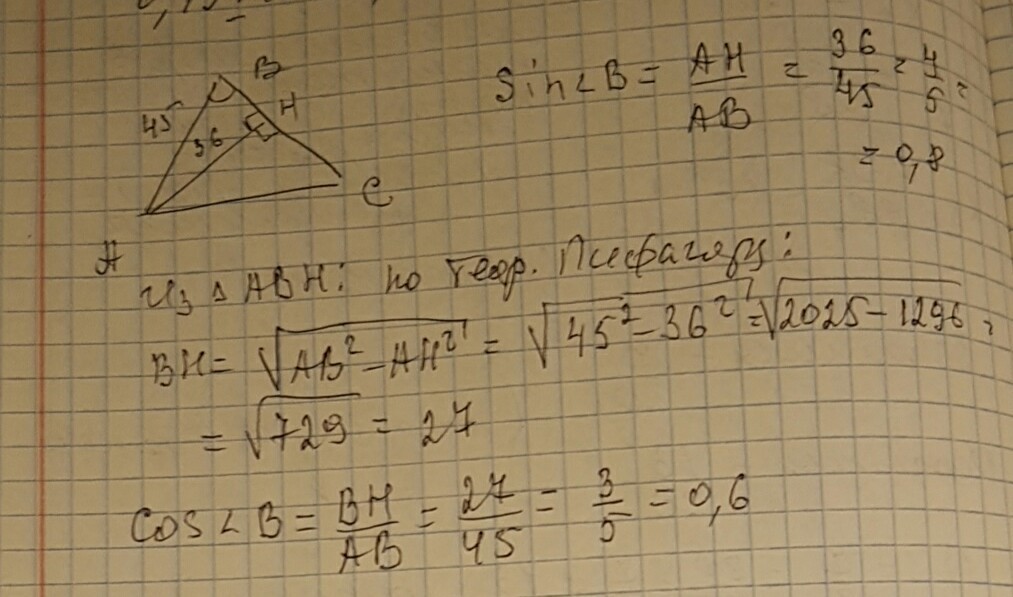 B
H
45
36
C
A
Sin∠B = AH/AB = 36/45 = 4/5 =
= 0,8
Из △ABH: по теор. Пифагора:
BH = √(AB² - AH²) = √(45² - 36²) = √(2025 - 1296) =
= √729 = 27
Cos∠B = BH/AB = 27/45 = 3/5 = 0,6